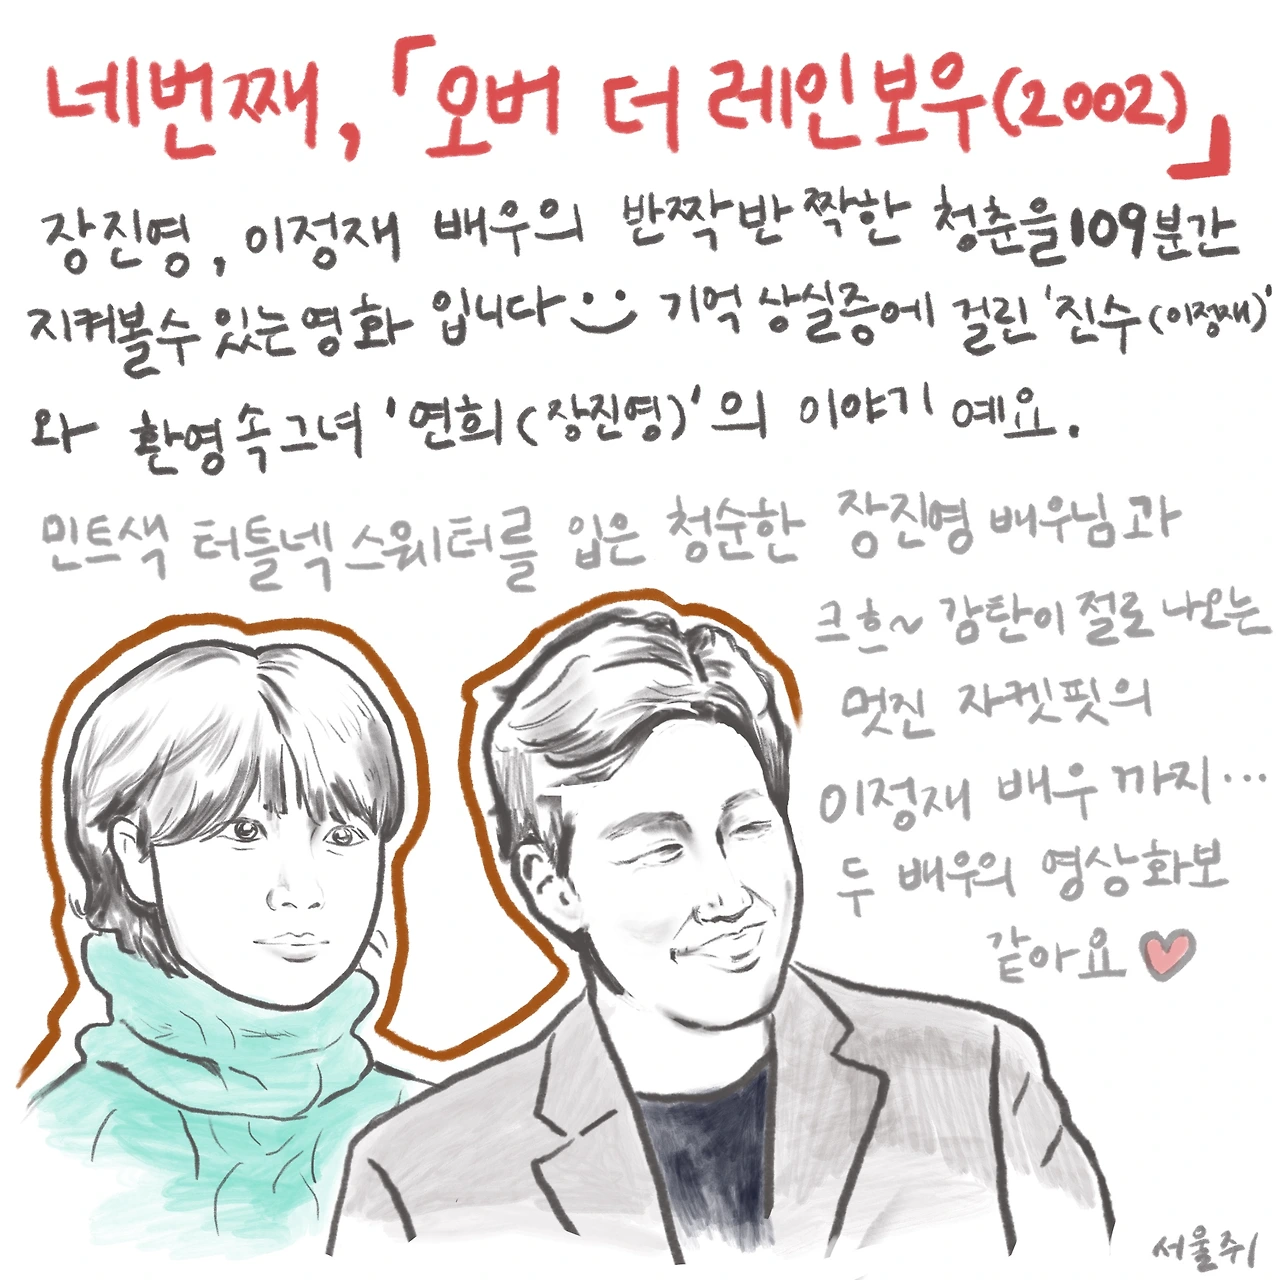 네번째, 「오버 더 레인보우(2002)」
장진영, 이정재 배우의 반짝반짝한 청춘을 109분간
지켜볼수 있는 영화 입니다 기억 상실증에 걸린 '진수(이정재)'
와 환영속그녀 '연희(장진영)'의 이야기 예요.
민트색 터틀넥 스웨터를 입은 청순한 장진영 배우님과
크흐~ 감탄이 절로 나오는
멋진 자켓핏의
이정재 배우 까지...
두 배우의 영상화보
같아요
서울쥐